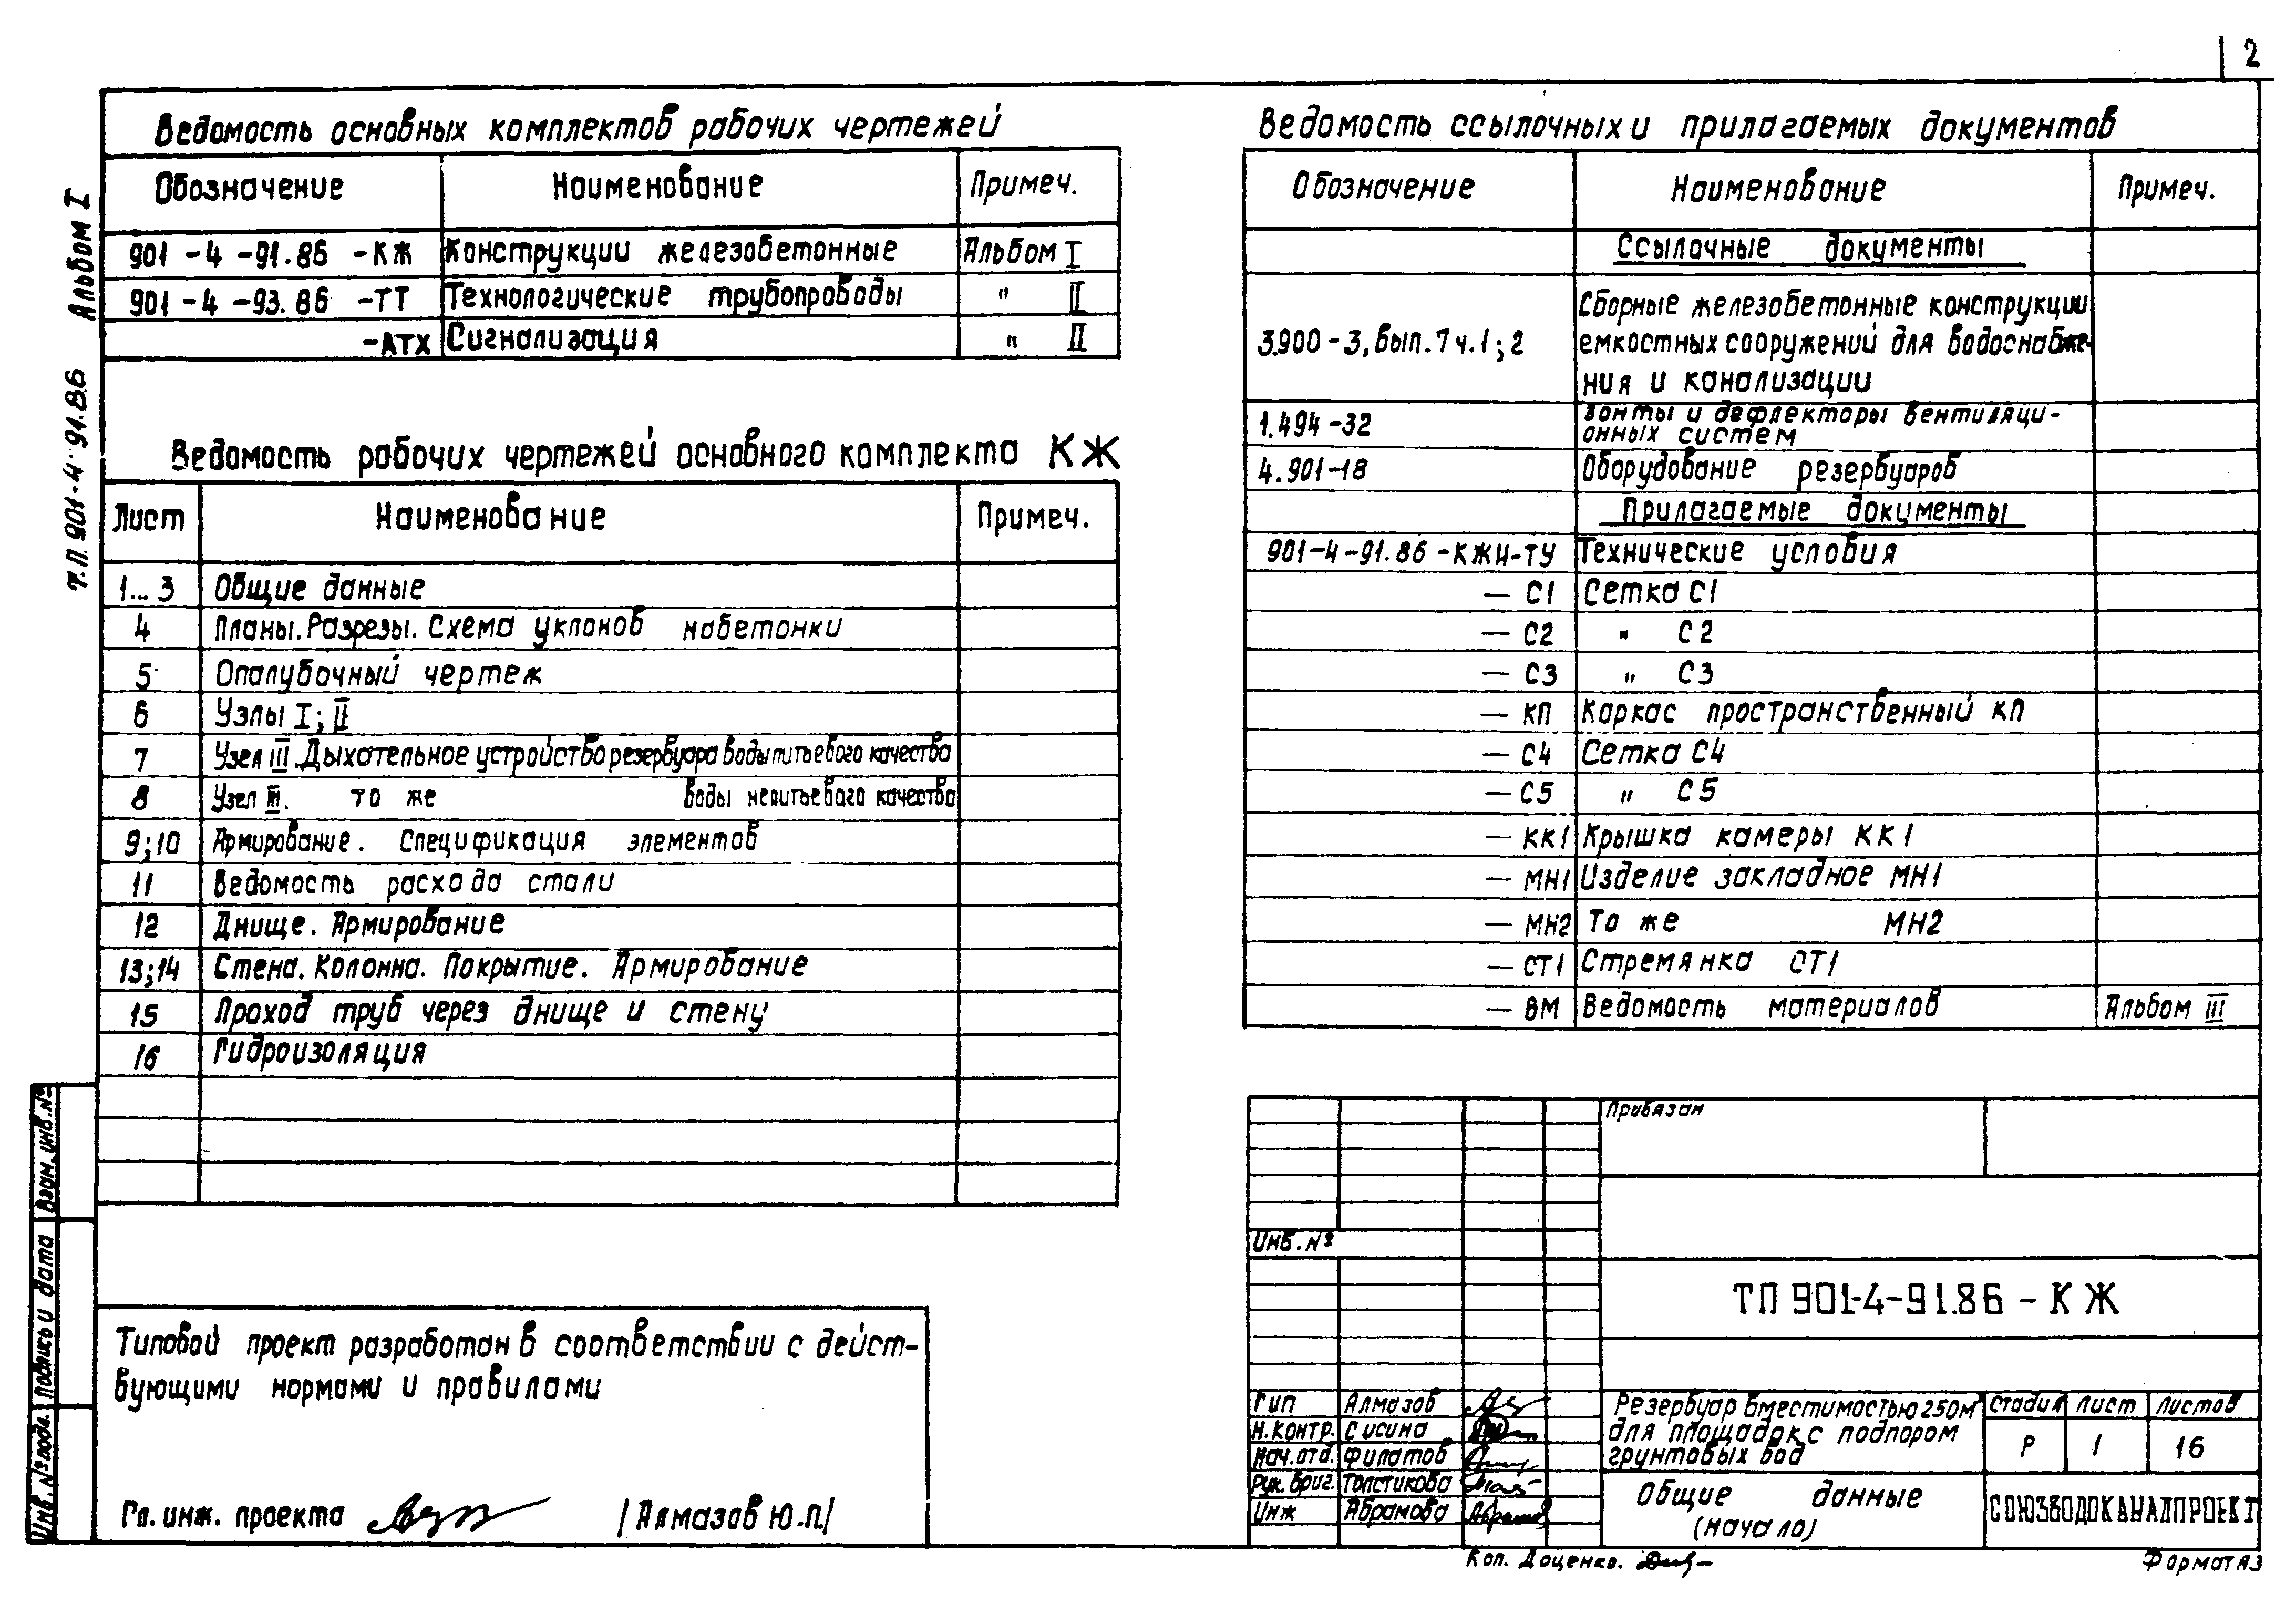 2
Ведомость основных комплектов рабочих чертежей
Обозначение Наименование Примеч.
901-4-91.86 -КЖ Конструкции железобетонные Альбом I
901-4-93.86 -ТТ Технологические трубопроводы " II
-АТХ Сигнализация " II
Ведомость рабочих чертежей основного комплекта КЖ
Лист Наименование Примеч.
1...3 Общие данные
4 Планы. Разрезы. Схема уклонов набетонки
5 Опалубочный чертеж
6 Узлы I; II
7 Узел III. Дыхательное устройство резервуара воды питьевого качества
8 Узел III. то же воды непитьевого качества
9;10 Армирование. Спецификация элементов
11 Ведомость расхода стали
12 Днище. Армирование
13;14 Стена. Колонна. Покрытие. Армирование
15 Проход труб через днище и стену
16 Гидроизоляция
Типовой проект разработан в соответствии с дейст-
вующими нормами и правилами
Гл. инж. проекта /Алмазов Ю.П./
Т.П. 901-4-91.86 Альбом I
Инв. № подл. Подпись и дата Взам. инв. №
Ведомость ссылочных и прилагаемых документов
Обозначение Наименование Примеч.
Ссылочные документы
Сборные железобетонные конструкции
3.900-3, вып. 7 ч.1; 2 емкостных сооружений для водоснабже-
ния и канализации
1.494-32 Зонты и дефлекторы вентиляци-
онных систем
4.901-18 Оборудование резервуаров
Прилагаемые документы
901-4-91.86-КЖИ-ТУ Технические условия
— С1 Сетка С1
— С2 " С2
— С3 " С3
— КП Каркас пространственный КП
— С4 Сетка С4
— С5 " С5
— КК1 Крышка камеры КК1
— МН1 Изделие закладное МН1
— МН2 То же МН2
— СТ1 Стремянка СТ1
— ВМ Ведомость материалов Альбом III
Привязан
Инв. №
ТП 901-4-91.86-КЖ
Гип Алмазов
Н.контр. Сисина
Нач.отд. Филатов
Рук. бриг. Толстикова
Инж Абрамова
Резервуар вместимостью 250м
для площадок с подпором
грунтовых вод
Стадия Лист Листов
Р 1 16
Общие данные
(начало)
СОЮЗВОДОКАНАЛПРОЕКТ
Коп. Доценко.
Формат А3